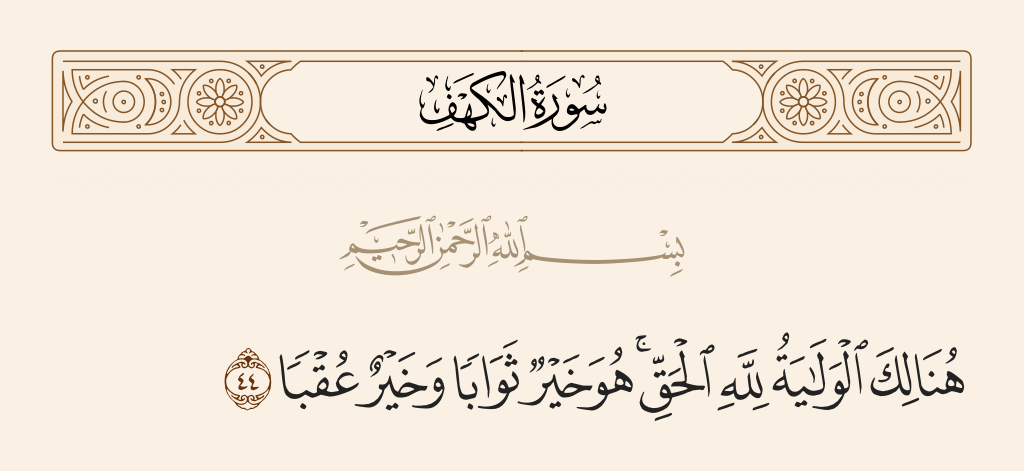 سُورَةُ الكَهۡفِ
بِسۡمِ ٱللَّهِ ٱلرَّحۡمَٰنِ ٱلرَّحِيمِ
هُنَالِكَ ٱلۡوَلَٰيَةُ لِلَّهِ ٱلۡحَقِّۚ هُوَ خَيۡرٞ ثَوَابٗا وَخَيۡرٌ عُقۡبٗا ٤٤